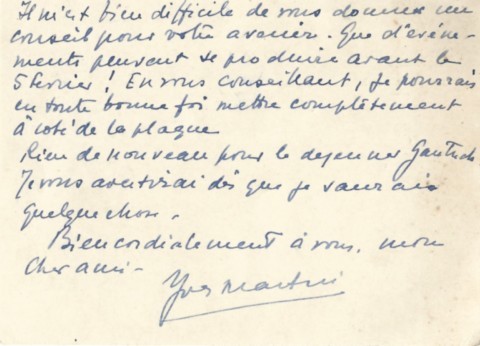 Il m'est bien difficile de vous donner un
conseil pour votre avenir. Que d'événe-
ments peuvent se produire avant le
5 février ! En vous conseillant, je pourrais
en toute bonne foi mettre complètement
à côté de la plaque
Rien de nouveau pour le dejeuner
Je vous avertirai dès que je saurais
quelque chose.
Bien cordialement à vous, mon
cher ami -
Yves Martin